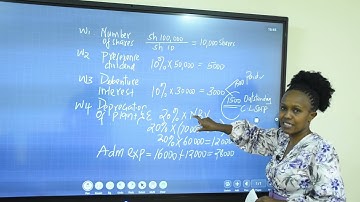 W1 Number of shares sh 100,000 / sh 10 = 10,000 Shares
W2 Preference dividend 10% x 50,000 = 5000
W3 Debenture interest 10% x 30000 = 3000
Paid
1500 Outstanding
C.L SOFP
W4 Depreciation of Plant & E 20% x NBV
20% x
20% x 60000 = 12000
Adm exp = 16000 + 12000 = 28000